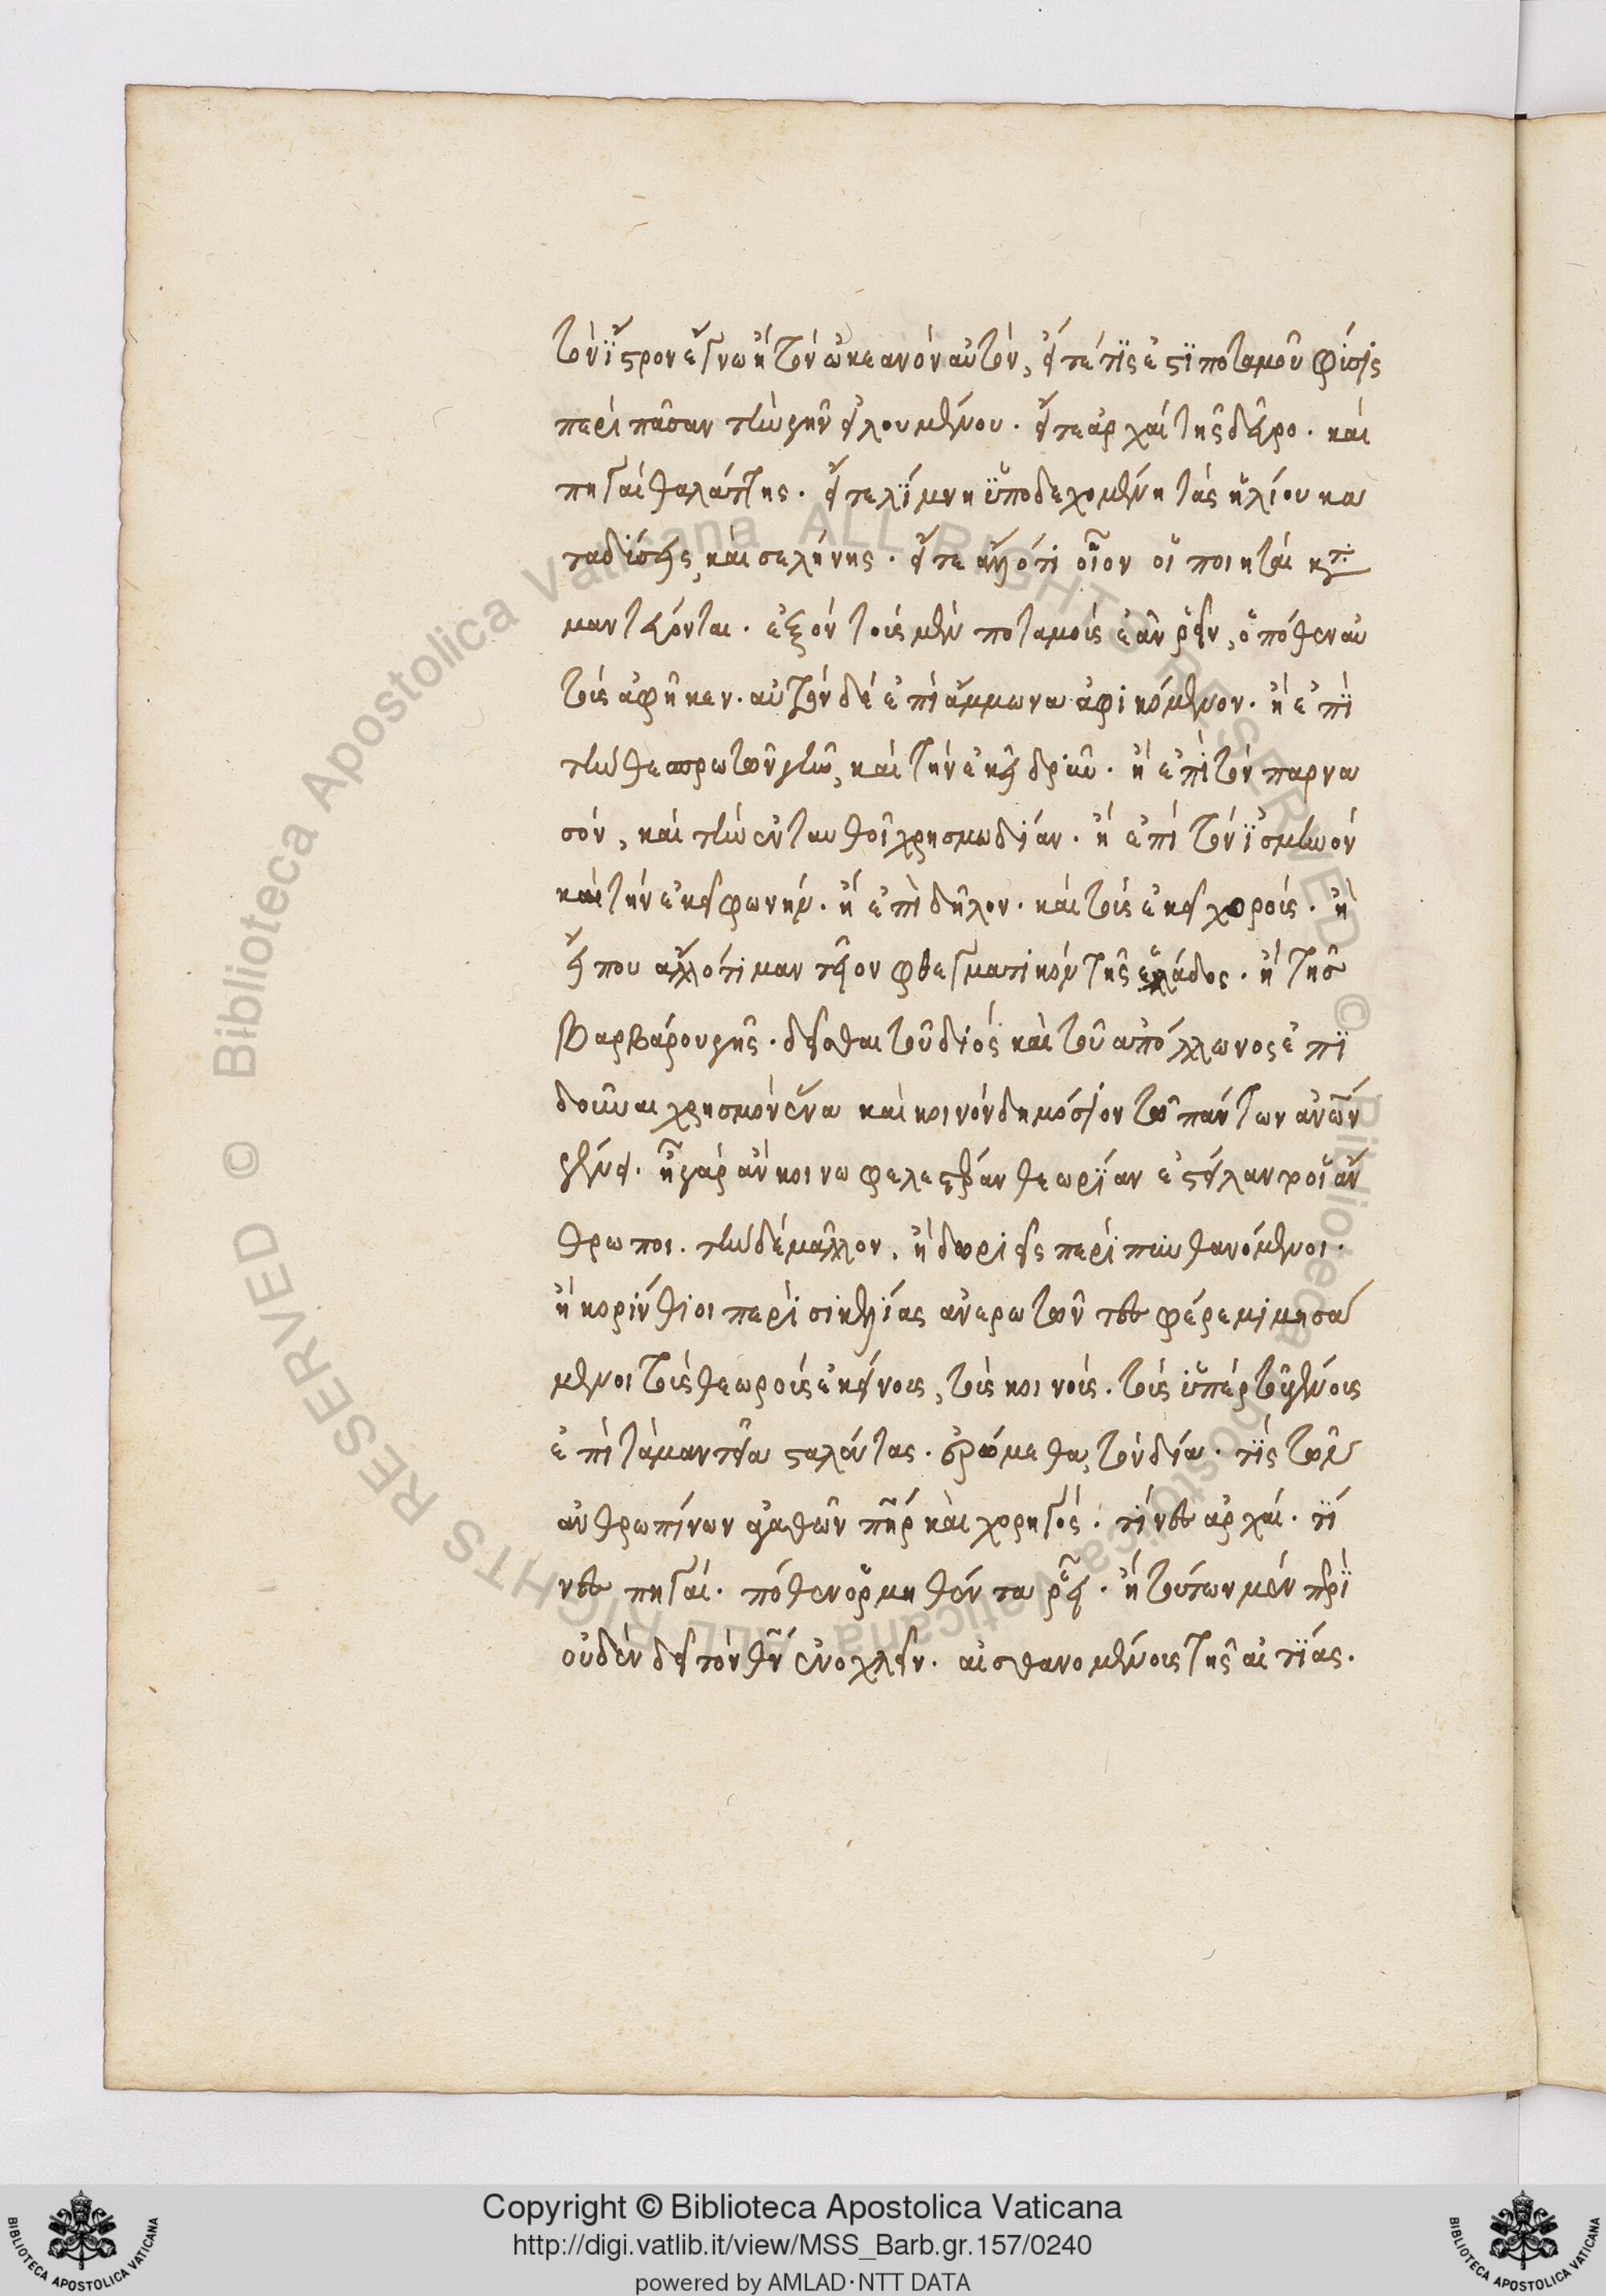 τὸν ἴστρον ἔγνω ἢ τὸν ὠκεανὸν αὐτὸν, εἴτέ τίς ἐστι ποταμοῦ φύσις
περὶ πᾶσαν τὴν γῆν εἱλουμένου. εἴτε ἀρχαὶ τῆς δεῦρο. καὶ
πηγαὶ θαλάττης. εἴτε λίμνη ὑποδεχομένη τὰς ἡλίου κα
ταδύσεις, καὶ σελήνης. εἴτε ἄλλο τι οἷον οἱ ποιηταὶ κτ
μαντεύονται. ἐξὸν τοὺς μὲν ποταμοὺς ἐᾶν ῥεῖν, ὁπόθεν αὐ
τοὺς ἀφῆκεν. αὐτὸν δὲ ἐπὶ ἄμμωνα ἀφικόμενον. ἢ ἐπὶ
τὴν θεσπρωτῶν γῆν, καὶ τὴν ἐκεῖ δρῦν. ἢ ἐπὶ τὸν παρνα
σὸν, καὶ τὴν ἐνταυθοῖ χρησμωδίαν. ἢ ἐπὶ τὸν ἰσμηνὸν
καὶ τὴν ἐκεῖ φωνήν. ἢ ἐπὶ δῆλον. καὶ τοὺς ἐκεῖ χοροὺς. ἢ
εἴ που ἄλλο τι μαντεῖον φθεγματικὸν τῆς ἑλλάδος. ἢ τῆς
βαρβάρου γῆς. δεῖσθαι τοῦ διὸς καὶ τοῦ ἀπόλλωνος ἐπι
δοῦναι χρησμὸν ἕνα καὶ κοινὸν δημόσιον τῶ πάντων ἀνῶν
γένει. ἦ γὰρ ἂν κοινωφελεστέραν θεωρίαν ἐστείλαντο οἱ ἄν
θρωποι. τὴν δὲ μᾶλλον. ἢ δωριεῖς περὶ πυνθανόμενοι.
ἢ κορίνθιοι περὶ σικελίας ἀνερωτῶντες φέρε μιμησά
μενοι τοὺς θεωροὺς ἐκείνους, τοὺς κοινοὺς. τοὺς ὑπὲρ τοῦ γένους
ἐπὶ τὰ μαντεῖα σταλέντας. ἐρώμεθα τὸν δία. τίς τῶν
ἀνθρωπίνων ἀγαθῶν πηρ καὶ χορηγός. τίνες ἀρχαὶ. τί
νες πηγαὶ. πόθεν ὁρμηθέντα ῥεῖ. ἢ τούτων μὲν πρι
οὐδὲν δεῖ τὸν θν ἐνοχλεῖν. αἰσθανομένους τῆς αἰτίας.
Copyright © Biblioteca Apostolica Vaticana
http://digi.vatlib.it/view/MSS_Barb.gr.157/0240
powered by AMLAD·NTT DATA